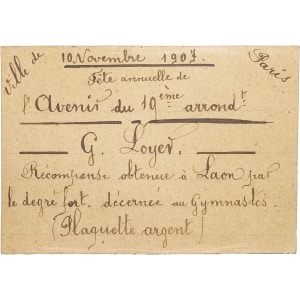 Ville de 10 Novembre 1907. Paris
Fête annuelle de
l'Avenir du 19ème arrondt
G. Loyer,
Récompense obtenue à Laon par
le degré fort. décernée au Gymnastes.
(Plaquette argent)